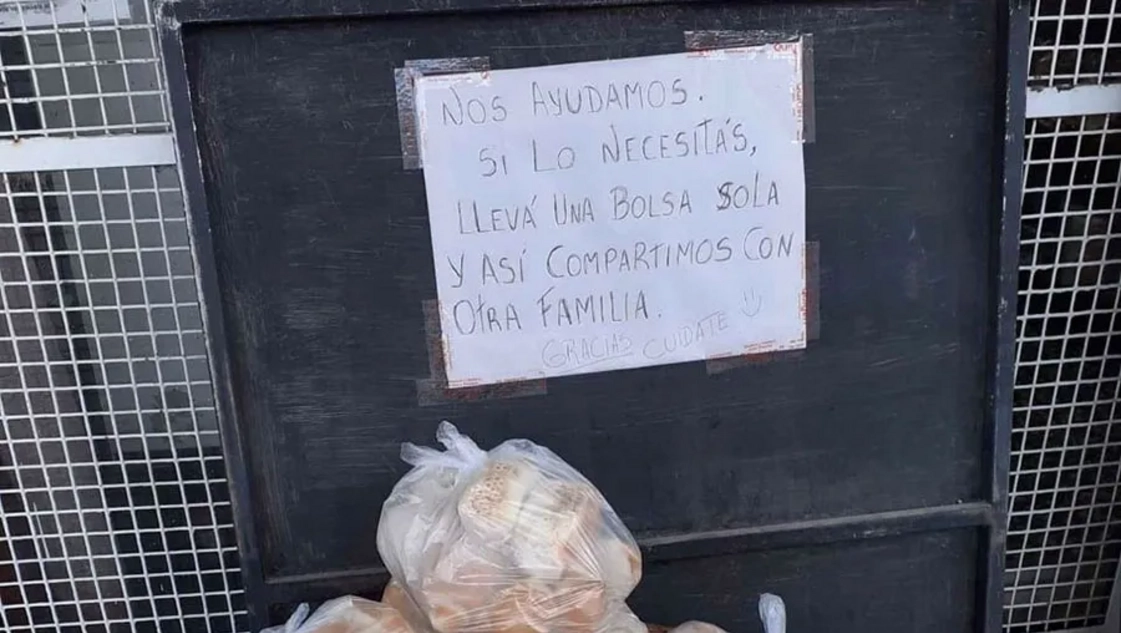 NOS AYUDAMOS.
SI LO NECESITÁS,
LLEVÁ UNA BOLSA SOLA
Y ASÍ COMPARTIMOS CON
OTRA FAMILIA.
GRACIAS CUIDATE